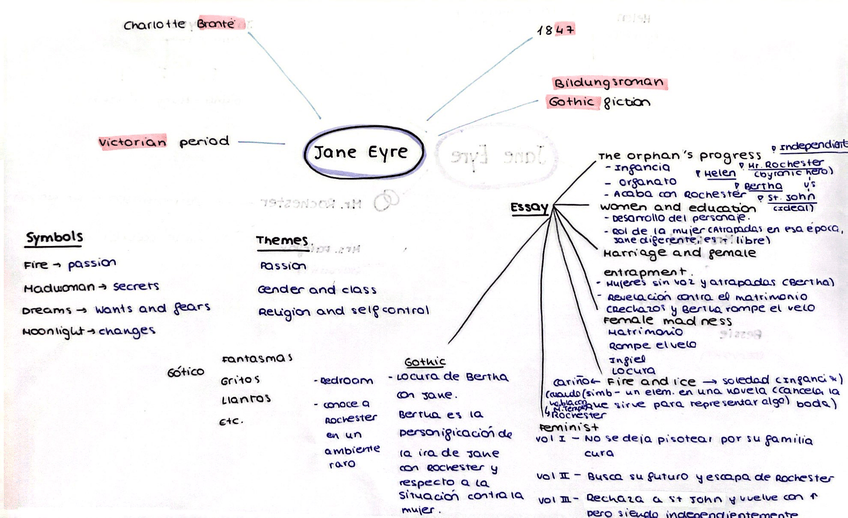 Charlotte Brontë
1847
Bildungsroman
Gothic fiction
Victorian period
Jane Eyre
Essay
The orphan's progress
Independient
- Infancia
Mr. Rochester
(byronic hero)
- Orfanato
Helen
Bertha
vs
- Acaba con Rochester
St. John
(ideal)
women and education
- Desarrollo del personaje.
- Rol de la mujer (atrapadas en esa época,
Jane diferente, es + libre)
Marriage and female
entrapment.
- Mujeres sin voz y atrapadas (Bertha)
- Revelación contra el matrimonio
(Rechazos y Bertha rompe el velo
Female madness
Matrimonio
Rompe el velo
Infiel
Locura
cariño ← Fire and ice → soledad (Infancia)
(simb - un elem. en una novela (cancela la
que sirve para representar algo) boda)
Rochester
Feminist
vol I - No se deja pisotear por su familia
cura
vol II - Busca su futuro y escapa de Rochester
vol III - Rechaza a St John y vuelve con r
pero siendo independientemente
Symbols
Fire → passion
Madwoman → secrets
Dreams → wants and fears
Moonlight → changes
Themes
Passion
Gender and class
Religion and self control
Gótico
Fantasmas
Gritos
Llantos
etc.
- Bedroom
- conoce a
Rochester
en un
ambiente
raro
Gothic
- Locura de Bertha
con Jane.
Bertha es la
personificación de
la ira de Jane
con Rochester y
respecto a la
situación contra la
mujer.